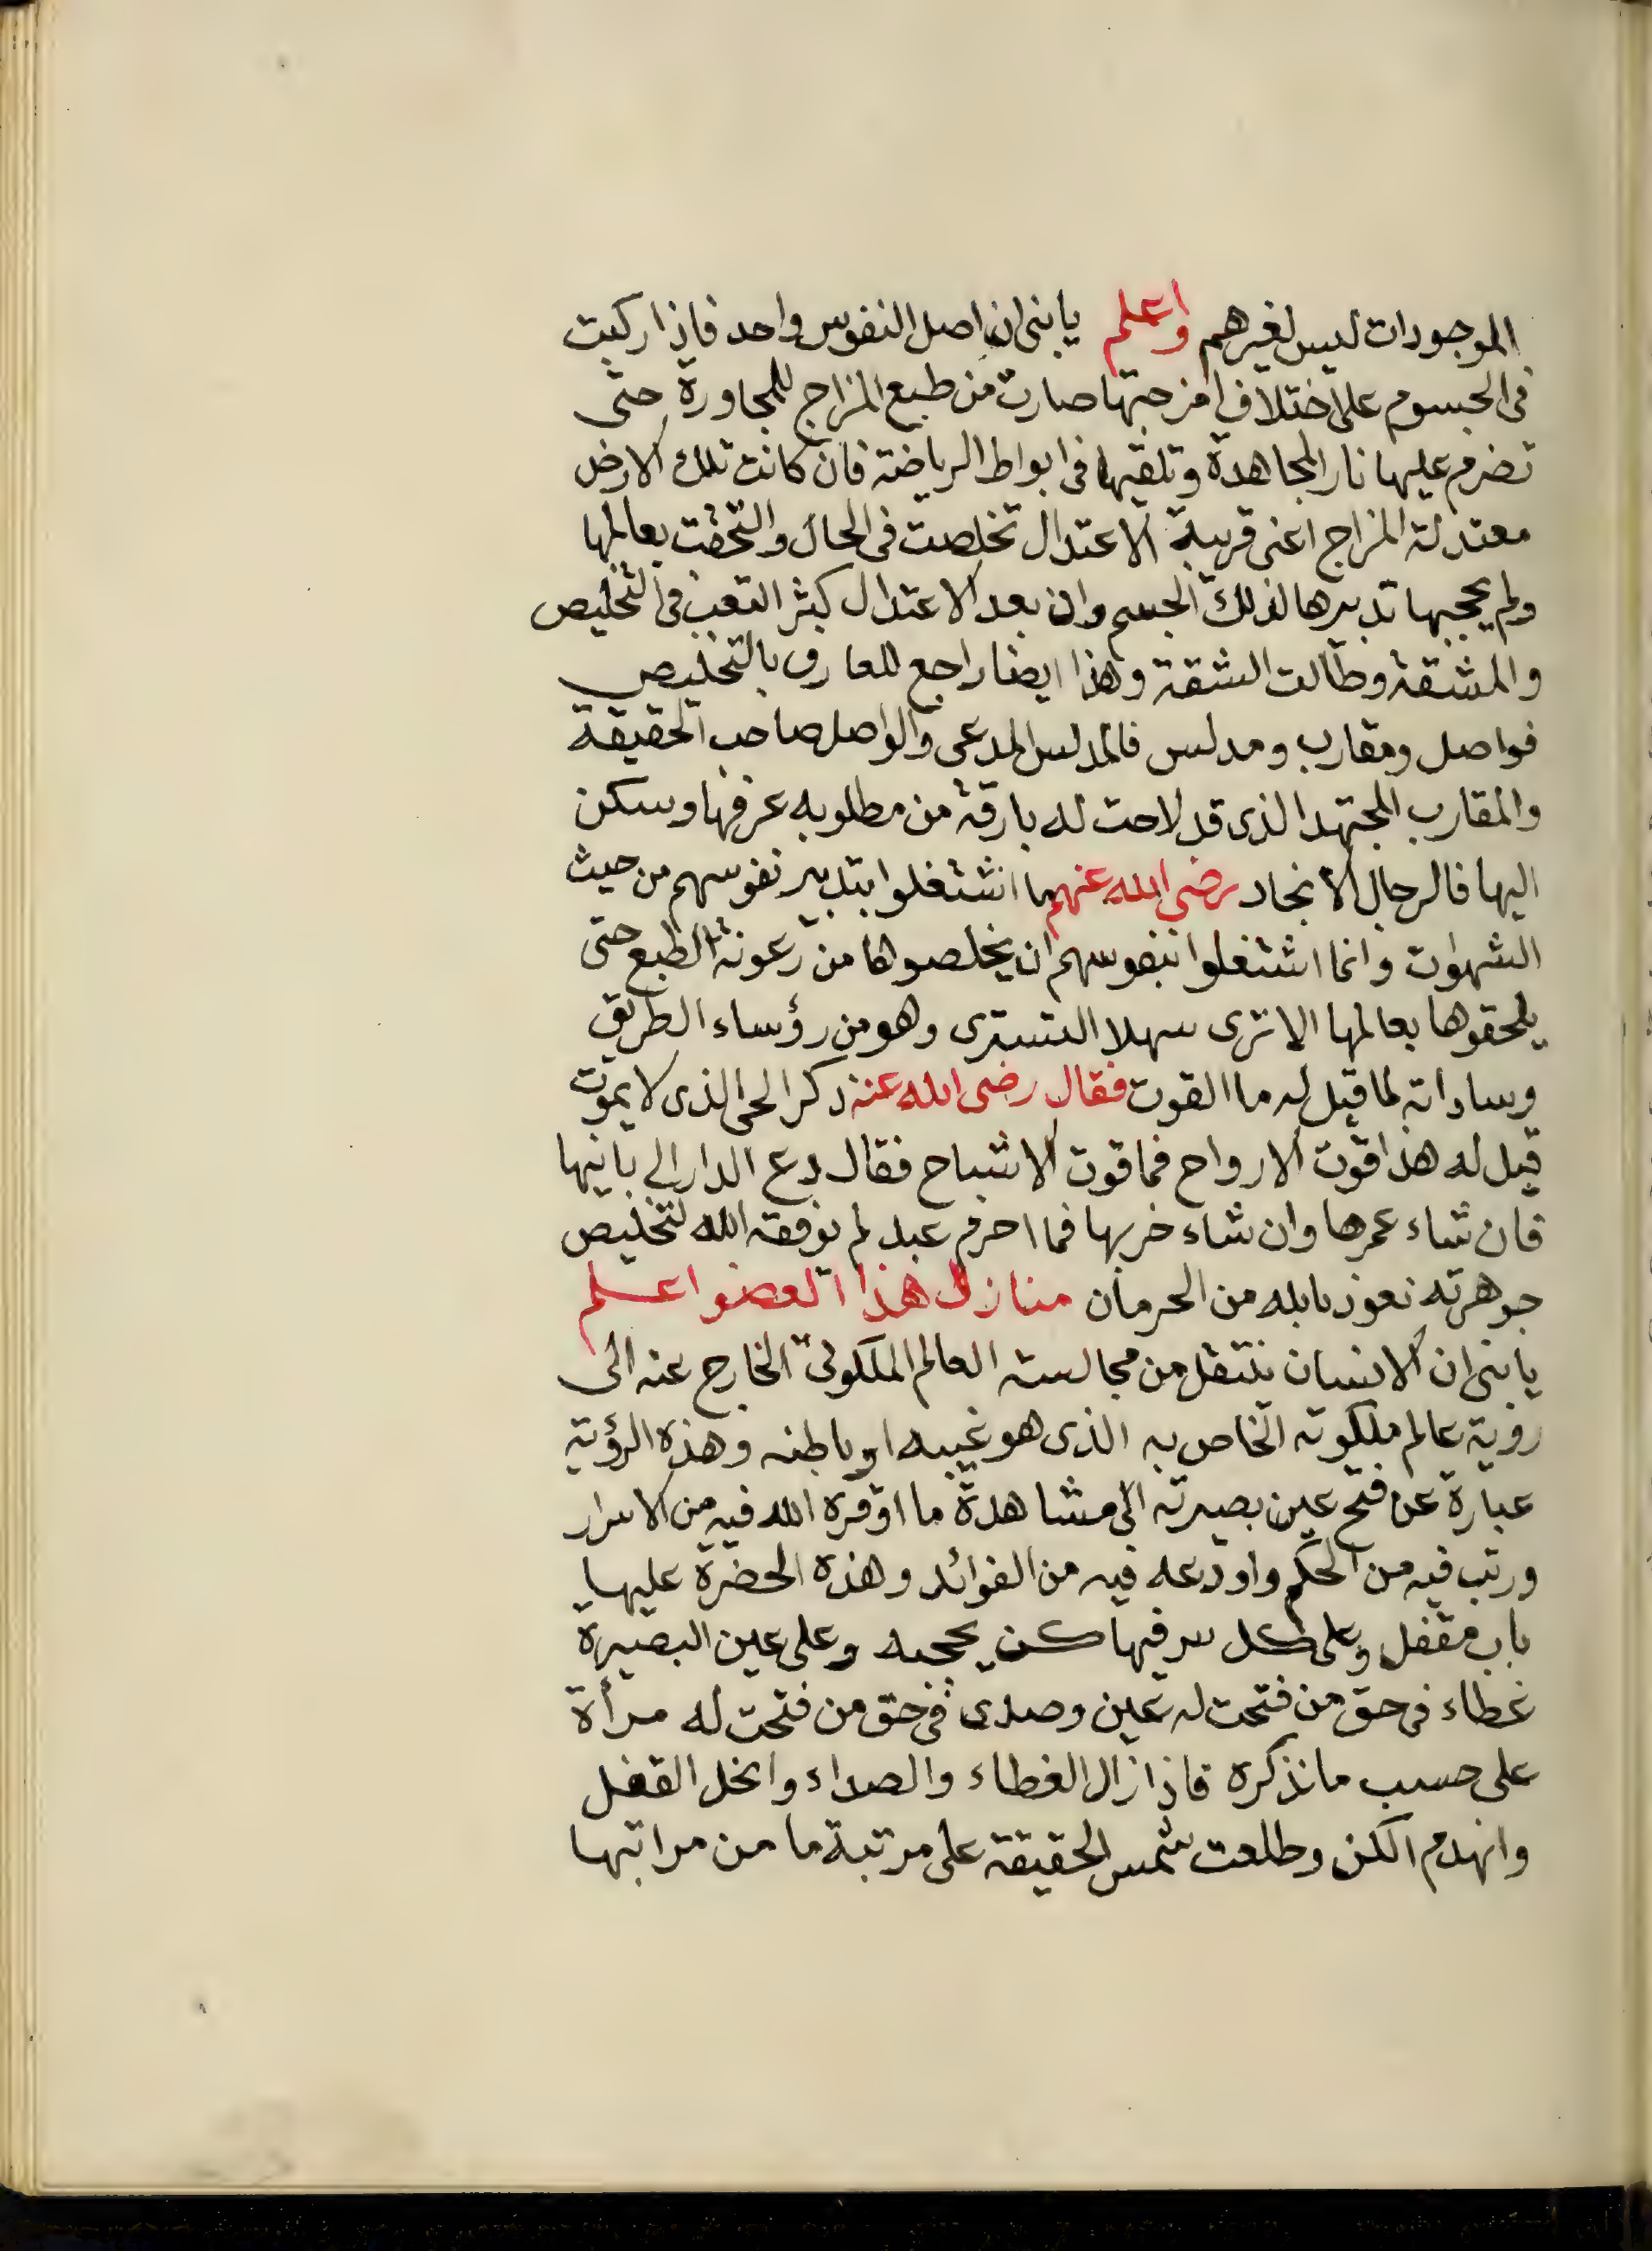 الموجودات ليس لغيرهم واعلم يابنى ان اصل النفوس واحد فاذا ركبت
فى الجسوم على اختلاف امزجتها صارت من طبع المزاج للمجاورة حتى
تضرم عليها نار المجاهدة وتلقيها فى ابواط الرياضة فان كانت تلك الارض
معتدلة المزاج اعنى قريبة الاعتدال تخلصت فى الحال والتحقت بعالمها
ولم يحجبها تدبيرها لذلك الجسم وان بعد الاعتدال كثر التعب فى التخليص
والمشقة وطالت الشقة وهذا ايضا راجع للعارف بالتخليص
فواصل ومقارب ومدلس فالمدلس المدعى والواصل صاحب الحقيقة
والمقارب المجتهد الذى قد لاحت له بارقة من مطلوبه عرفها وسكن
اليها فالرجال الانجاد رضى الله عنهم ما اشتغلوا بتدبير نفوسهم من حيث
الشهوات وانما اشتغلوا بنفوسهم ان يخلصوها من رعونة الطبع حتى
يلحقوها بعالمها الا ترى سهلا التسترى وهو من رؤساء الطريق
وساداته لما قيل له ما القوت فقال رضى الله عنه ذكر الحى الذى لا يموت
قيل له هذا قوت الارواح فما قوت الاشباح فقال دع الدار الى بانيها
فان شاء عمرها وان شاء خربها فما احرم عبد لم يوفقه الله لتخليص
جوهرته نعوذ بالله من الحرمان منازل هذا العضو اعلم
يابنى ان الانسان ينتقل من مجالسة العالم الملكوتى الخارج عنه الى
روية عالم ملكوته الخاص به الذى هو غيبه او باطنه وهذه الرؤية
عبارة عن فتح عين بصيرته الى مشاهدة ما اوقره الله فيه من الاسرار
ورتب فيه من الحكم واودعه فيه من الفوائد وهذه الحضرة عليها
باب مقفل وعلى كل سر فيها كن يحجبه وعلى عين البصيرة
غطاء فى حق من فتحت له عين وصدى فى حق من فتحت له مرأة
على حسب ما نذكره فاذا زال الغطاء والصداء وانحل القفل
وانهدم الكن وطلعت شمس الحقيقة على مرتبة ما من مراتبها